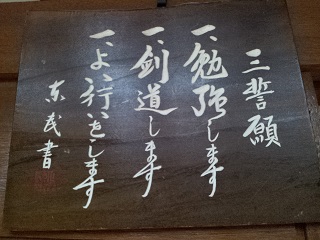 三誓願
一、勉強します
一、剣道します
一、よい行いをします
東民書